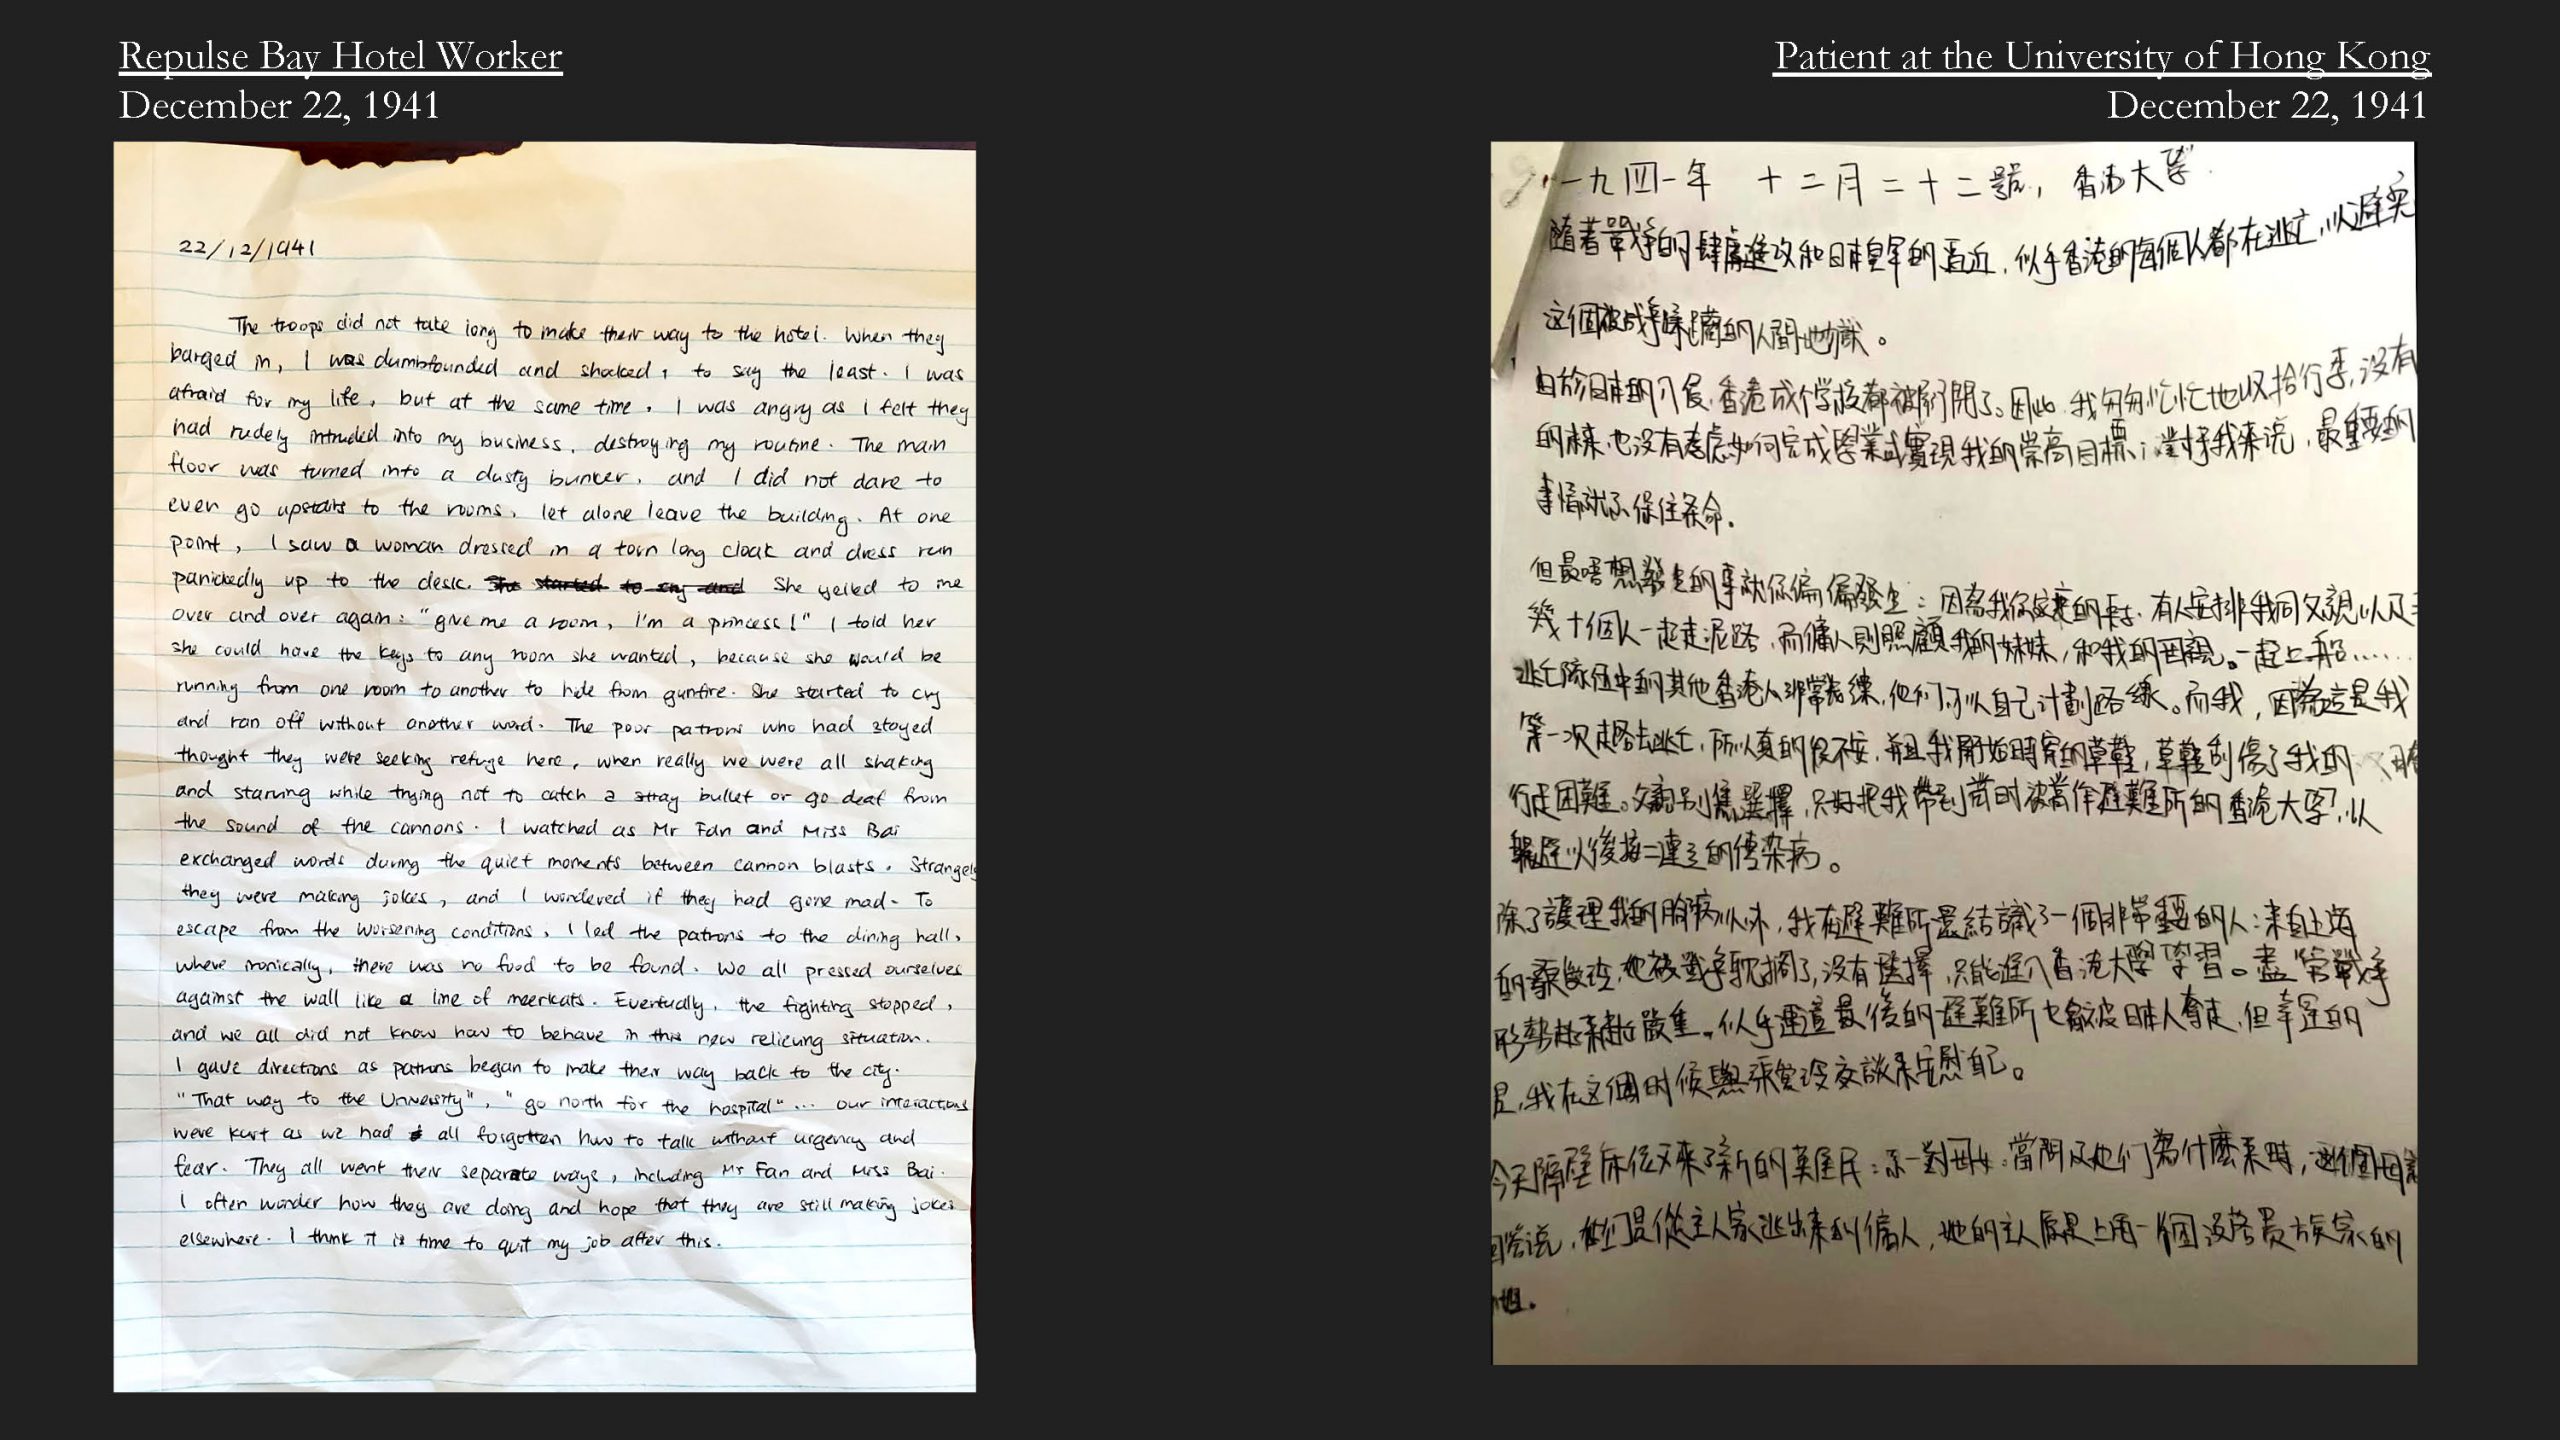 Repulse Bay Hotel Worker
December 22, 1941
22/12/1941
The troops did not take long to make their way to the hotel. When they
barged in, I was dumbfounded and shocked, to say the least. I was
afraid for my life, but at the same time, I was angry as I felt they
had rudely intruded into my business, destroying my routine. The main
floor was turned into a dusty bunker, and I did not dare to
even go upstairs to the rooms, let alone leave the building. At one
point, I saw a woman dressed in a torn long cloak and dress run
panickedly up to the desk. She started to cry and She yelled to me
over and over again: "give me a room, I'm a princess!" I told her
she could have the keys to any room she wanted, because she would be
running from one room to another to hide from gunfire. She started to cry
and ran off without another word. The poor patrons who had stayed
thought they were seeking refuge here, when really we were all shaking
and starving while trying not to catch a stray bullet or go deaf from
the sound of the cannons. I watched as Mr Fan and Miss Bai
exchanged words during the quiet moments between cannon blasts. Strangely
they were making jokes, and I wondered if they had gone mad. To
escape from the worsening conditions, I led the patrons to the dining hall,
where ironically, there was no food to be found. We all pressed ourselves
against the wall like a line of meerkats. Eventually, the fighting stopped,
and we all did not know how to behave in this new relieving situation.
I gave directions as patrons began to make their way back to the city.
"That way to the University", "go north for the hospital"... our interactions
were kurt as we had all forgotten how to talk without urgency and
fear. They all went their separate ways, including Mr Fan and Miss Bai.
I often wonder how they are doing and hope that they are still making jokes
elsewhere. I think it is time to quit my job after this.
Patient at the University of Hong Kong
December 22, 1941
一九四一年 十二月二十二號, 香港大學
隨着戰爭的肆虐進攻和日本皇軍的逼近, 似乎香港的每個人都在逃亡, 以避突
这個被戰爭蹂躪的人間地獄。
由於日本的入侵, 香港成个学校都被關閉了。因此, 我匆匆忙忙地收拾行李, 没有
的未來, 也没有考虑如何完成學業或實現我的崇高目標; 對於我来说, 最重要的
事情就系保住条命.
但最唔想發生的事就係偏偏發生: 因為我係家裏的長子, 有人安排我同父親以及
幾十個人一起走泥路, 而傭人則照顧我的妹妹, 和我的母親。一起上船......
逃亡隊伍中的其他香港人非常老練, 他们可以自己計劃路線。而我, 因為這是我
第一次走路去逃亡, 所以真的很不安, 并且我開始時穿的草鞋, 草鞋刮傷了我的
行走困難。父親别無選擇, 只好把我帶到當时被當作避難所的香港大學, 以
躲避以後接二連三的傳染病。
除了護理我的脚病以外, 我在避難所還結識了一個非常重要的人: 来自上海
的張愛玲, 她被戰爭耽擱了, 没有選擇, 只能進入香港大學學習。盡管戰爭
形勢越来越嚴重。似乎連這最後的避難所也會被日本人奪走, 但幸運的
是, 我在这個时候與張愛玲交談来安慰自己。
今天隔壁床位又来了新的難民: 系一對母女. 當問及她们為什麼来時, 這個
回答说, 她们是從主人家逃出来的傭人, 她的主人原是上海一個没落貴族家的